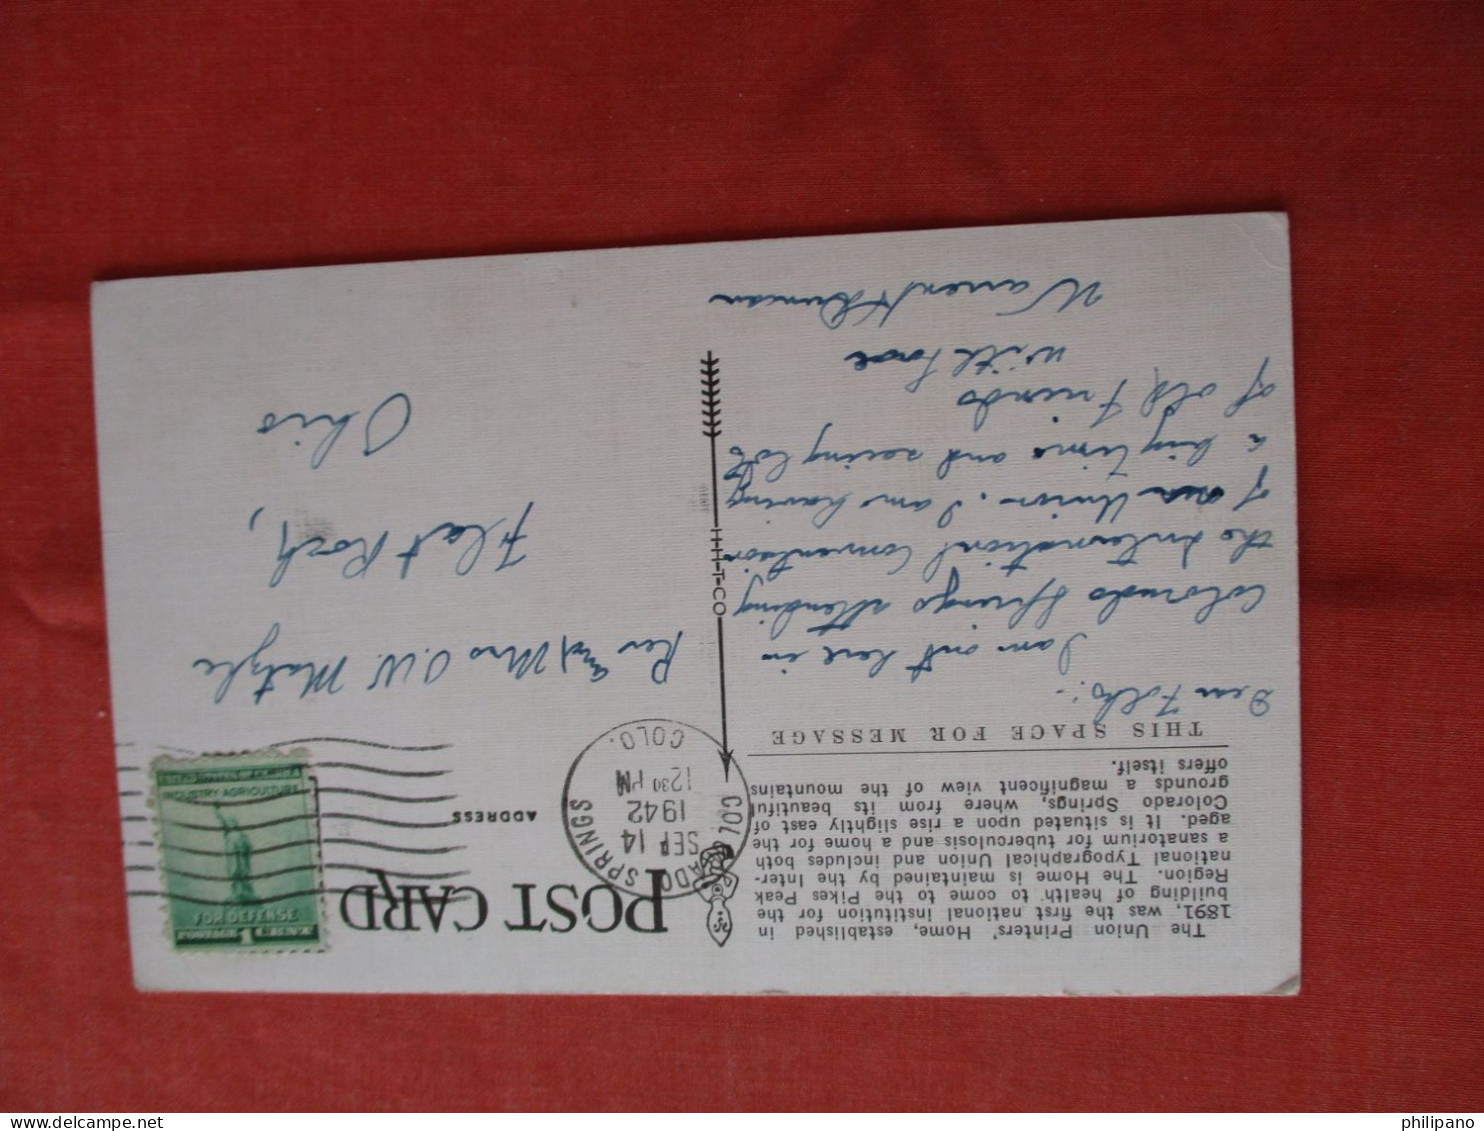 The Union Printers' Home, established in
1891, was the first national institution for the
building of health to come to the Pikes Peak
Region. The Home is maintained by the Inter-
national Typographical Union and includes both
a sanatorium for tuberculosis and a home for the
aged. It is situated upon a rise slightly east of
Colorado Springs, where from its beautiful
grounds a magnificent view of the mountains
offers itself.
THIS SPACE FOR MESSAGE
Dear Folks:-
I am out here in
Colorado Springs attending
the International Convention
of Union. I am having
a big time and seeing lots
of old Friends
with love
Warren H Duncan
H-H-T-CO
POST CARD
ADDRESS
COLORADO SPRINGS
SEP 14
1942
1230 PM
COLO.
1
FOR DEFENSE
INDUSTRY AGRICULTURE
Rev and Mrs O.W. Matzke
Flat Rock,
Ohio
philipano